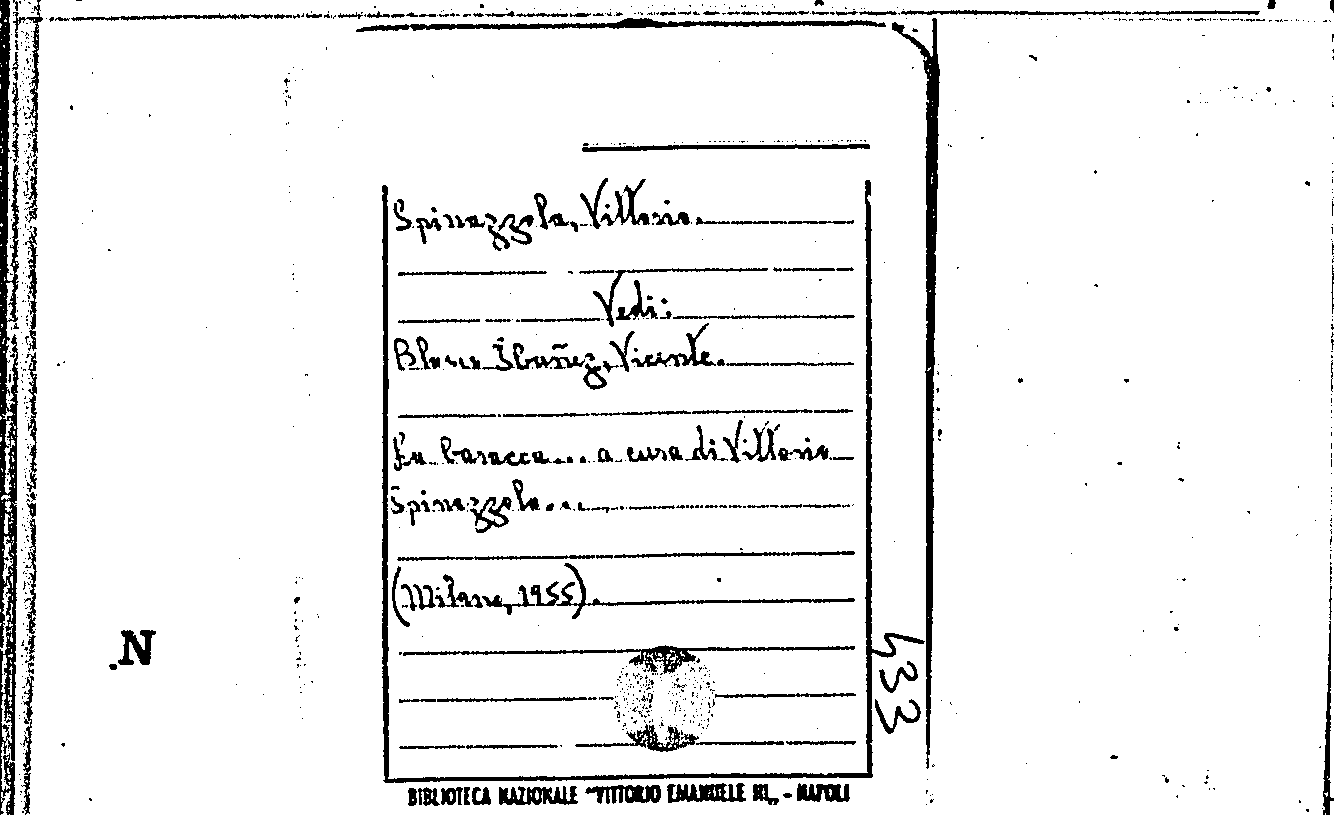 Spinazzola, Vittorio.
Vedi:
Blasco Ibañez, Vicente.
La baracca... a cura di Vittorio
Spinazzola...
(Milano, 1955).
N.
433
BIBLIOTECA NAZIONALE "VITTORIO EMANUELE III„ - NAPOLI